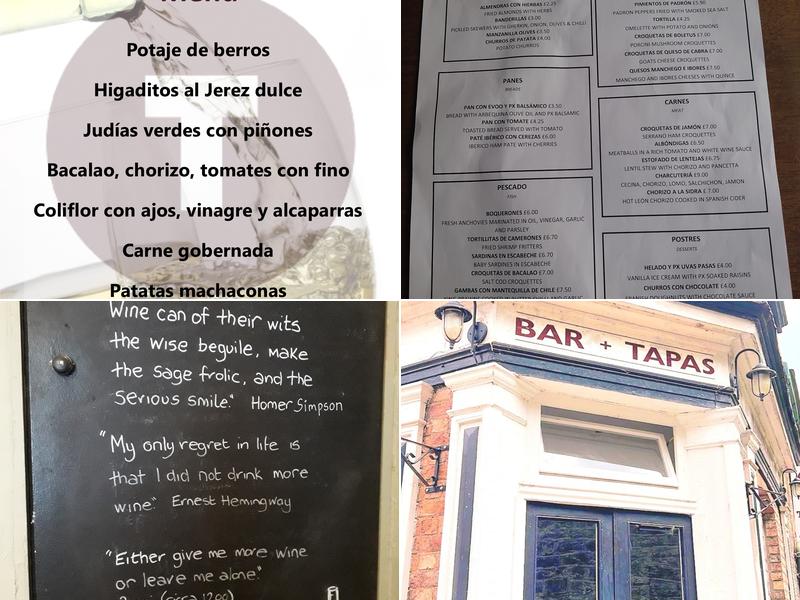 Menú
Potaje de berros
Higaditos al Jerez dulce
Judías verdes con piñones
Bacalao, chorizo, tomates con fino
Coliflor con ajos, vinagre y alcaparras
Carne gobernada
Patatas machaconas
ALMENDRAS CON HIERBAS £2.25
FRIED ALMONDS WITH HERBS
BANDERILLAS £3.00
PICKLED SKEWERS WITH GHERKIN, ONION, OLIVES & CHILLI
MANZANILLA OLIVES £3.50
CHURROS DE PATATA £4.00
POTATO CHURROS
PANES
BREADS
PAN CON EVOO Y PX BALSÁMICO £3.50
BREAD WITH ARBEQUINA OLIVE OIL AND PX BALSAMIC
PAN CON TOMATE £4.25
TOASTED BREAD SERVED WITH TOMATO
PATÉ IBÉRICO CON CEREZAS £6.00
IBERICO HAM PATE WITH CHERRIES
PESCADO
FISH
BOQUERONES £6.00
FRESH ANCHOVIES MARINATED IN OIL, VINEGAR, GARLIC
AND PARSLEY
TORTILLITAS DE CAMERONES £6.70
FRIED SHRIMP FRITTERS
SARDINAS EN ESCABECHE £6.70
BABY SARDINES IN ESCABECHE
CROQUETAS DE BACALAO £7.00
SALT COD CROQUETTES
GAMBAS CON MANTEQUILLA DE CHILE £7.50
PIMIENTOS DE PADRÓN £5.90
PADRON PEPPERS FRIED WITH SMOKED SEA SALT
TORTILLA £4.25
OMELETTE WITH POTATO AND ONIONS
CROQUETAS DE BOLETUS £7.00
PORCINI MUSHROOM CROQUETTES
CROQUETAS DE QUESO DE CABRA £7.00
GOATS CHEESE CROQUETTES
QUESOS MANCHEGO E IBORES £7.50
MANCHEGO AND IBORES CHEESES WITH QUINCE
CARNES
MEAT
CROQUETAS DE JAMÓN £7.00
SERRANO HAM CROQUETTES
ALBÓNDIGAS £6.50
MEATBALLS IN A RICH TOMATO AND WHITE WINE SAUCE
ESTOFADO DE LENTEJAS £6.75
LENTIL STEW WITH CHORIZO AND PANCETTA
CHARCUTERÍA £9.00
CECINA, CHORIZO, LOMO, SALCHICHON, JAMON
CHORIZO A LA SIDRA £7.00
HOT LEON CHORIZO COOKED IN SPANISH CIDER
POSTRES
DESSERTS
HELADO Y PX UVAS PASAS £4.00
VANILLA ICE CREAM WITH PX SOAKED RAISINS
CHURROS CON CHOCOLATE £4.00
SPANISH DOUGHNUTS WITH CHOCOLATE SAUCE
Wine can of their wits
the wise beguile, make
the sage frolic, and the
serious smile." Homer Simpson
"My only regret in life is
that I did not drink more
wine." Ernest Hemingway
"Either give me more wine
or leave me alone."
(circa 1200)
BAR + TAPAS